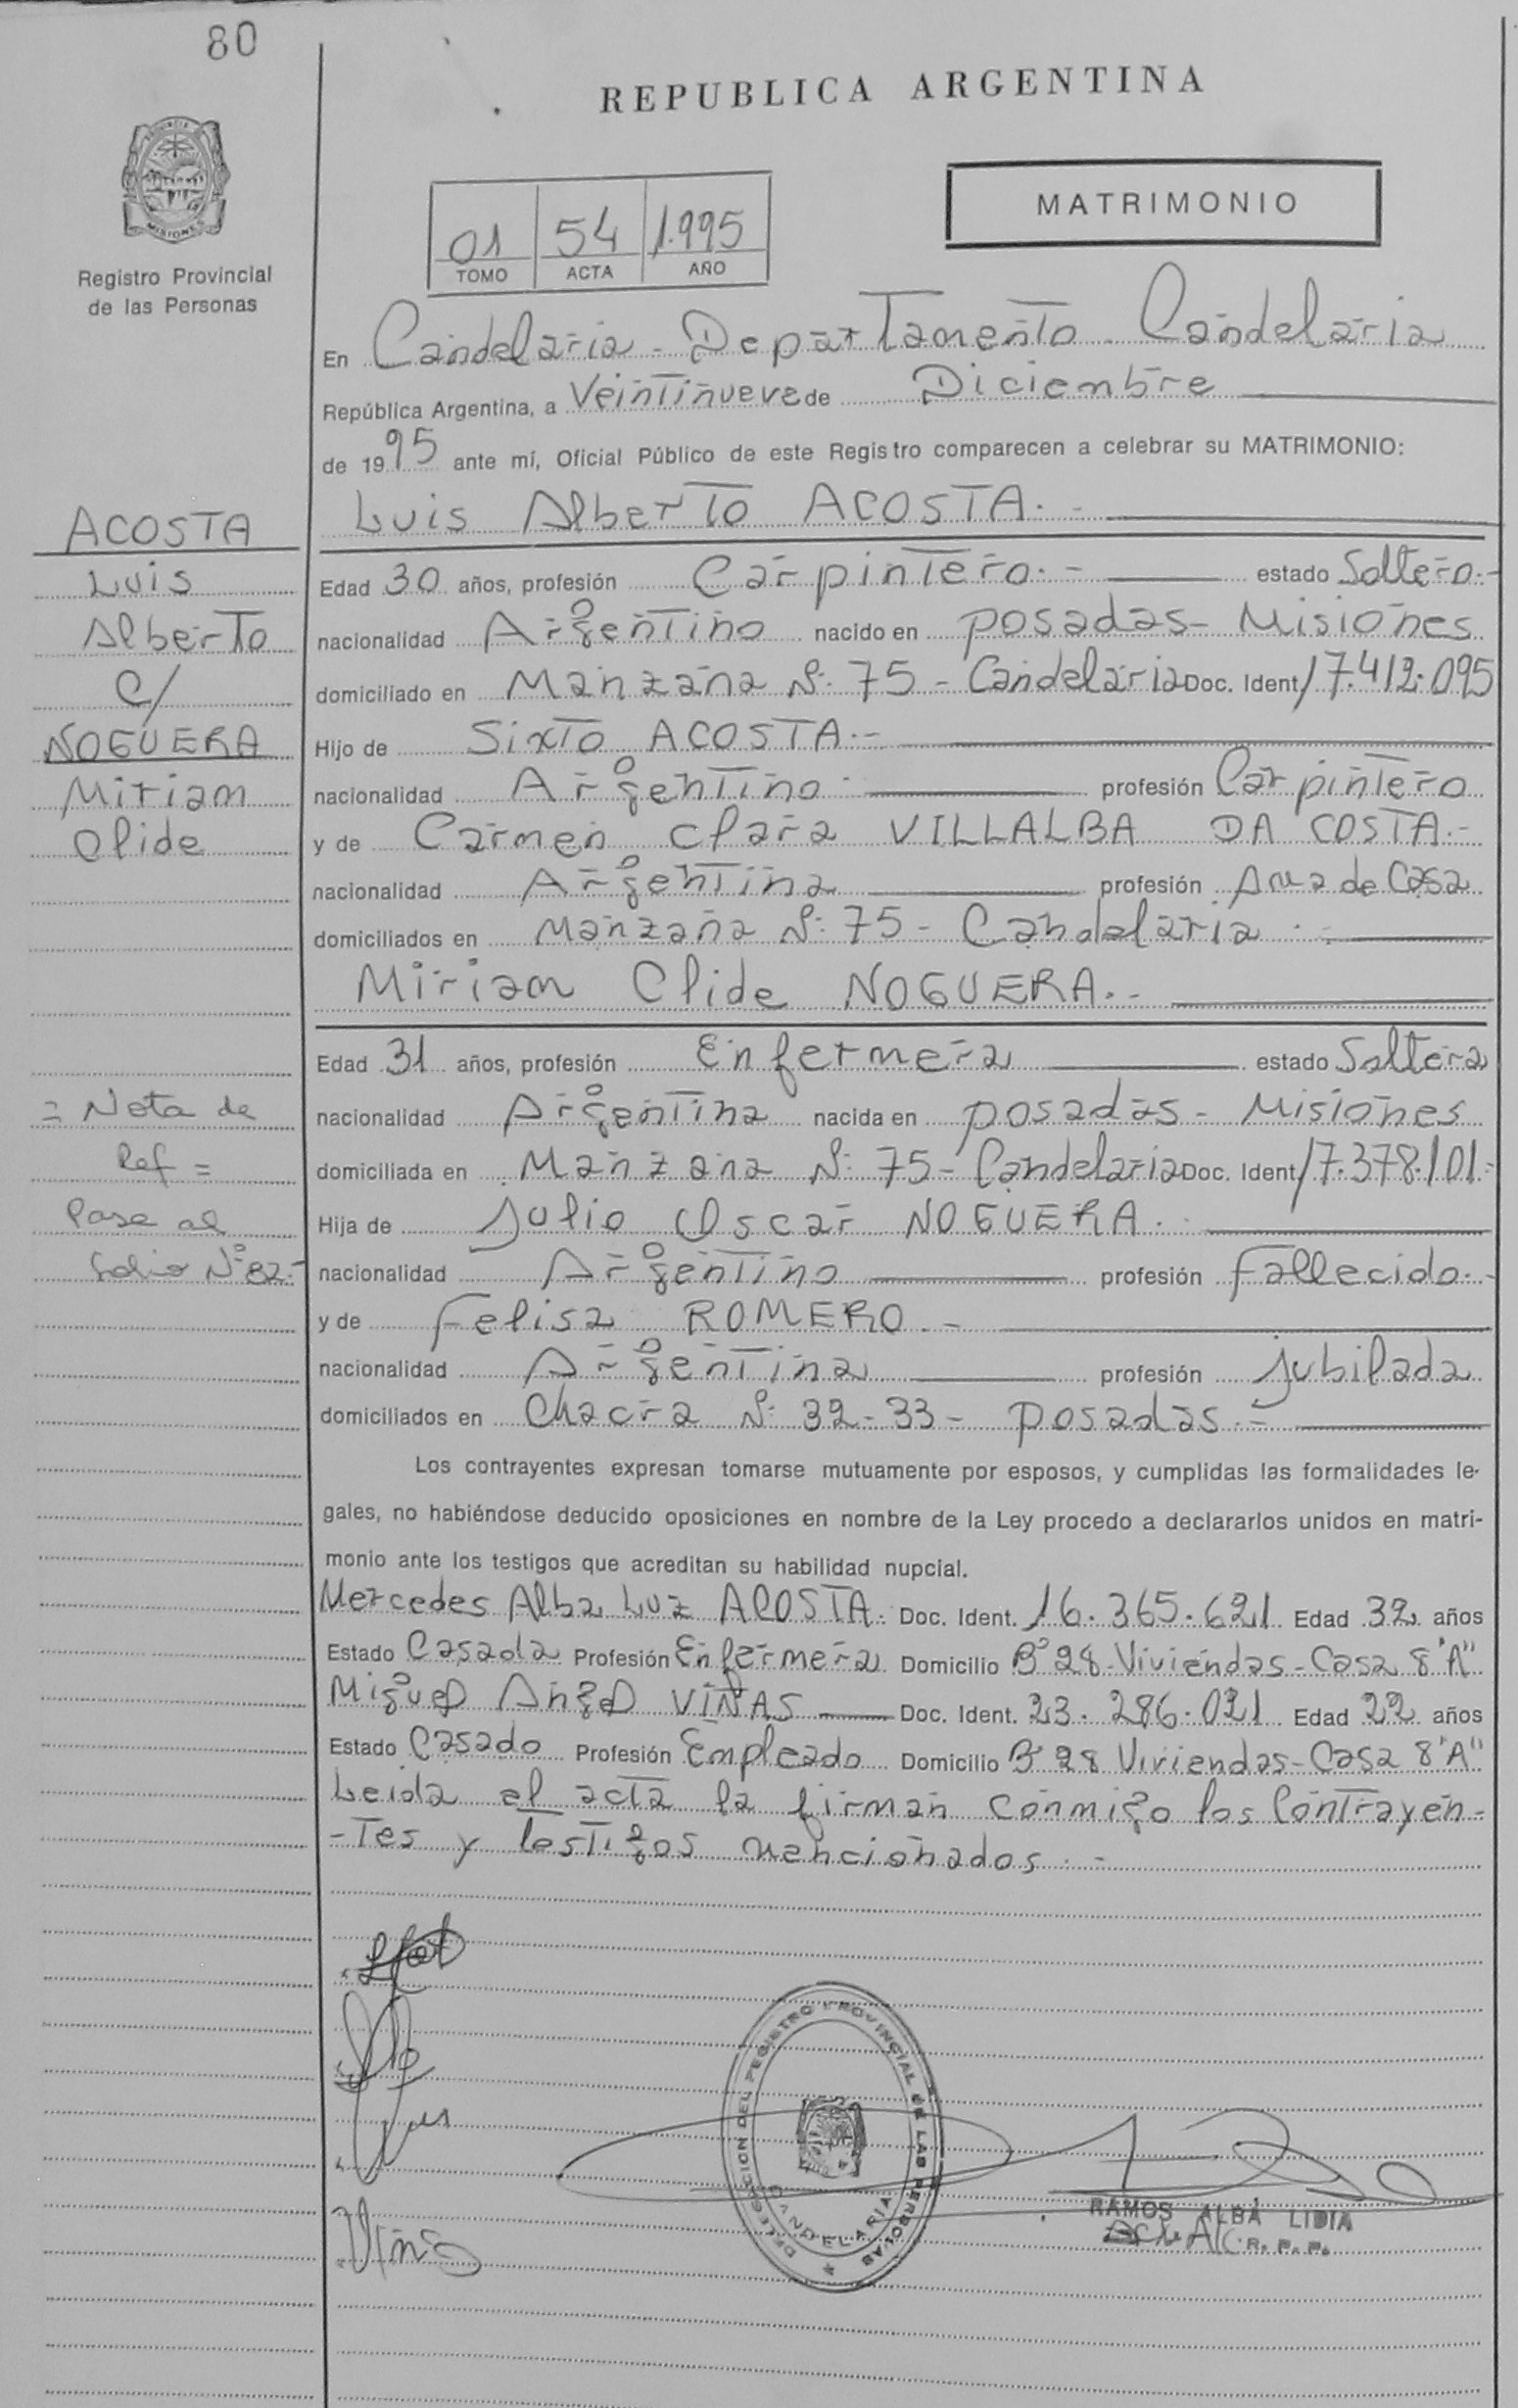 80
REPUBLICA ARGENTINA
MISIONES
Registro Provincial
de las Personas
01 54 1.995
TOMO ACTA AÑO
MATRIMONIO
En Candelaria - Departamento Candelaria
República Argentina, a Veintinueve de Diciembre
de 1995 ante mí, Oficial Público de este Registro comparecen a celebrar su MATRIMONIO:
Luis Alberto ACOSTA.-
ACOSTA
Luis
Alberto
C/
NOGUERA
Miriam
Clide
Edad 30 años, profesión Carpintero.- estado Soltero.-
nacionalidad Argentino nacido en Posadas - Misiones
domiciliado en Manzana N: 75 - Candelaria Doc. Ident 17.412.095
Hijo de Sixto ACOSTA.-
nacionalidad Argentino profesión Carpintero
y de Carmen Clara VILLALBA DA COSTA.-
nacionalidad Argentina profesión Ama de Casa
domiciliados en Manzana N: 75 - Candelaria.-
Miriam Clide NOGUERA.-
Edad 31 años, profesión Enfermera estado Soltera
nacionalidad Argentina nacida en Posadas - Misiones
domiciliada en Manzana N: 75 - Candelaria Doc. Ident 17.378.101.-
Hija de Julio Oscar NOGUERA.
nacionalidad Argentino profesión Fallecido.-
y de Felisa ROMERO.-
nacionalidad Argentina profesión Jubilada
domiciliados en Chacra N: 32-33 - Posadas.-
= Nota de
Ref =
Pase al
folio Nº 82.-
Los contrayentes expresan tomarse mutuamente por esposos, y cumplidas las formalidades le-
gales, no habiéndose deducido oposiciones en nombre de la Ley procedo a declararlos unidos en matri-
monio ante los testigos que acreditan su habilidad nupcial.
Mercedes Alba Luz ACOSTA. Doc. Ident. 16.365.621 Edad 32 años
Estado Casada Profesión Enfermera Domicilio Bº 28 Viviendas - Casa 8 "A"
Miguel Angel VIÑAS Doc. Ident. 23.286.021 Edad 22 años
Estado Casado Profesión Empleado Domicilio Bº 28 Viviendas - Casa 8 "A"
Leida el acta la firman conmigo los Contrayen-
-tes y testigos mencionados.-
DELEGACION DEL REGISTRO PROVINCIAL DE LAS PERSONAS
CANDELARIA
RAMOS ALBA LIDIA
R. P. P.